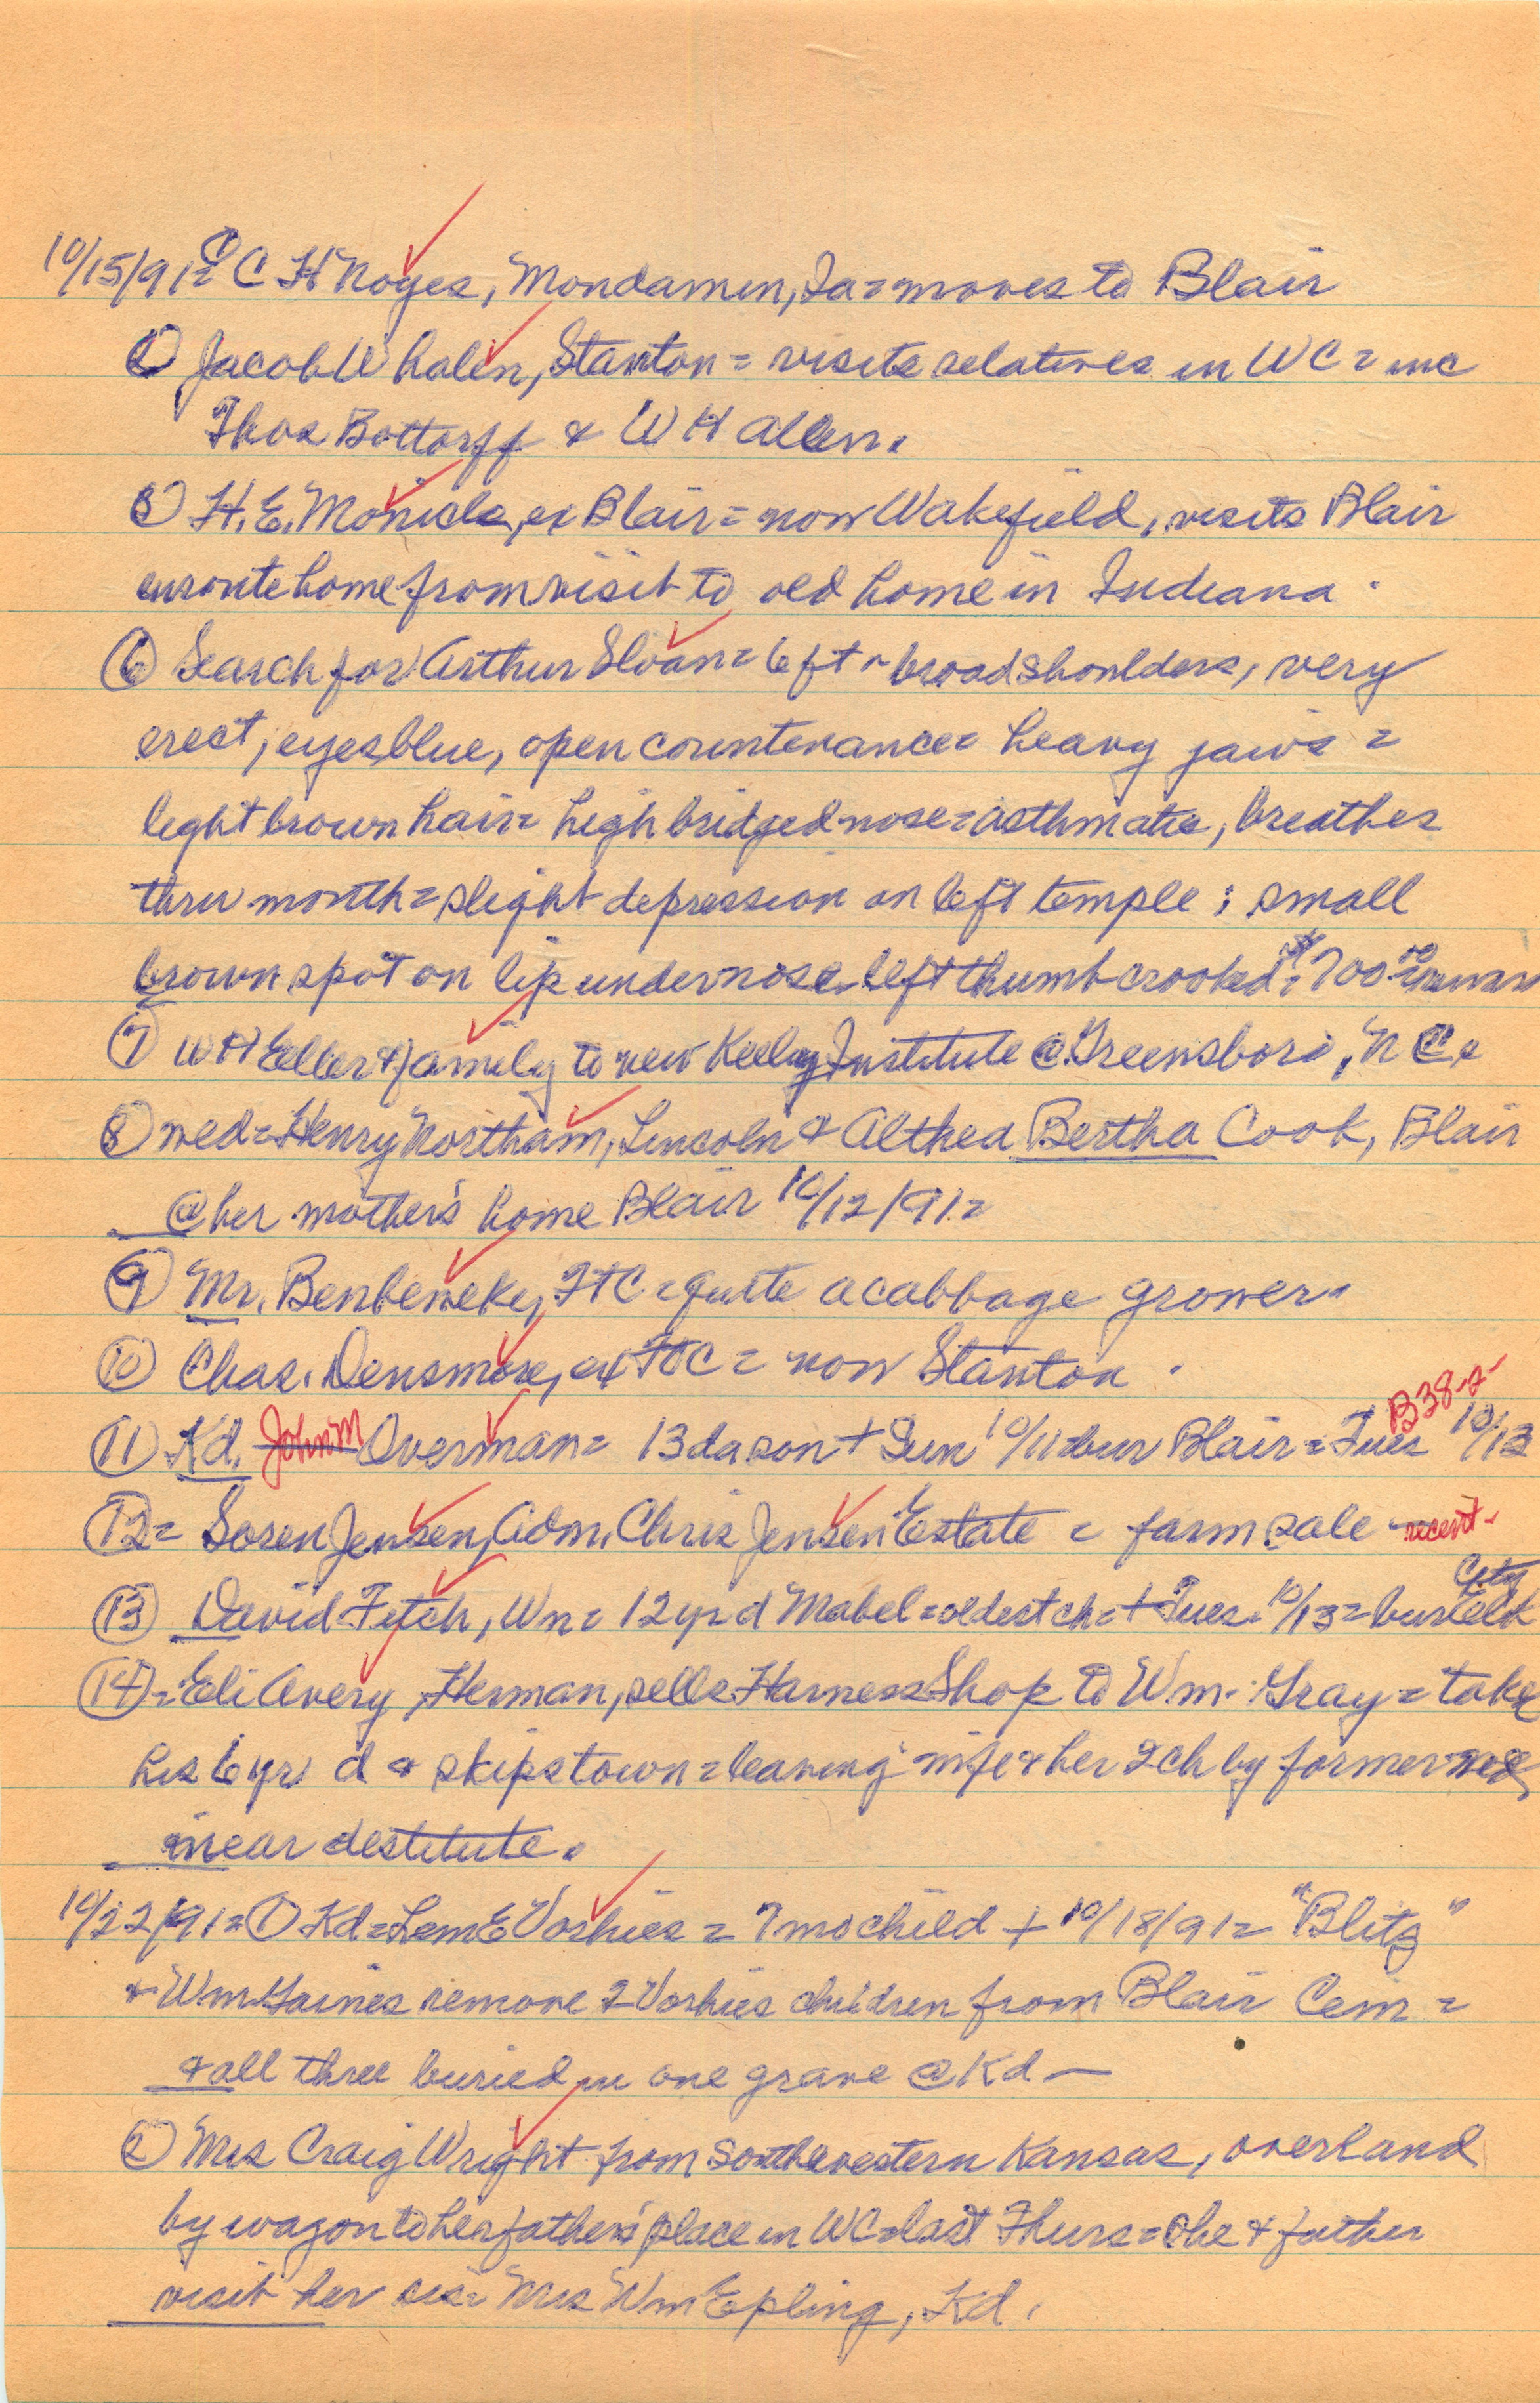 10/15/91= C H Noyes, Mondamin, Ia = moves to Blair
Jacob Whalen, Stanton = visits relatives in WC = inc
Thos Bottorff & W H Allen.
H. E. Monicle, ex Blair = now Wakefield, visits Blair
enroute home from visit to old home in Indiana.
(6) Search for Arthur Sloan = 6 ft - broad shoulders, very
erect, eyes blue, open countenance = heavy jaws =
light brown hair = high bridged nose = asthmatic, breathes
thru mouth = slight depression on left temple; small
brown spot on lip under nose. left thumb crooked = $700.00
(7) W H Eller & family to new Keeley Institute @ Greensboro, N C.
(8) wed = Henry Northam, Lincoln & Althea Bertha Cook, Blair
@ her mother's home Blair 10/12/91 =
(9) Mr. Benbeneke, FTC = quite a cabbage grower.
(10) Chas. Densmore, ex FTC = now Stanton.
B38-2-
(11) Kd. John M Overman = 13 da son + Sun 10/11 = bur Blair = Tues 10/13
(12 = Soren Jensen, Adm. Chris Jensen Estate = farm sale recent -
City
(13) David Fitch, Wn = 12 yr d Mabel = oldest ch = + Tues. 10/13 = bur Elk
(14) = Eli Avery, Herman, sells Harness Shop to Wm. Gray = take
his 6 yr d & skips town = leaving wife & her 2 ch by former
near destitute.
10/22/91 = (1) Kd = Lem E Vorhies = 7 mo child + 10/18/91 = "Blitz"
& Wm Gaines remove 2 Vorhies children from Blair Cem =
& all three buried in one grave @ Kd —
(2) Mrs Craig Wright from Southwestern Kansas, overland
by wagon to her father's place in WC = last Thurs = she & father
visit her sis = Mrs Wm Epling, Kd.